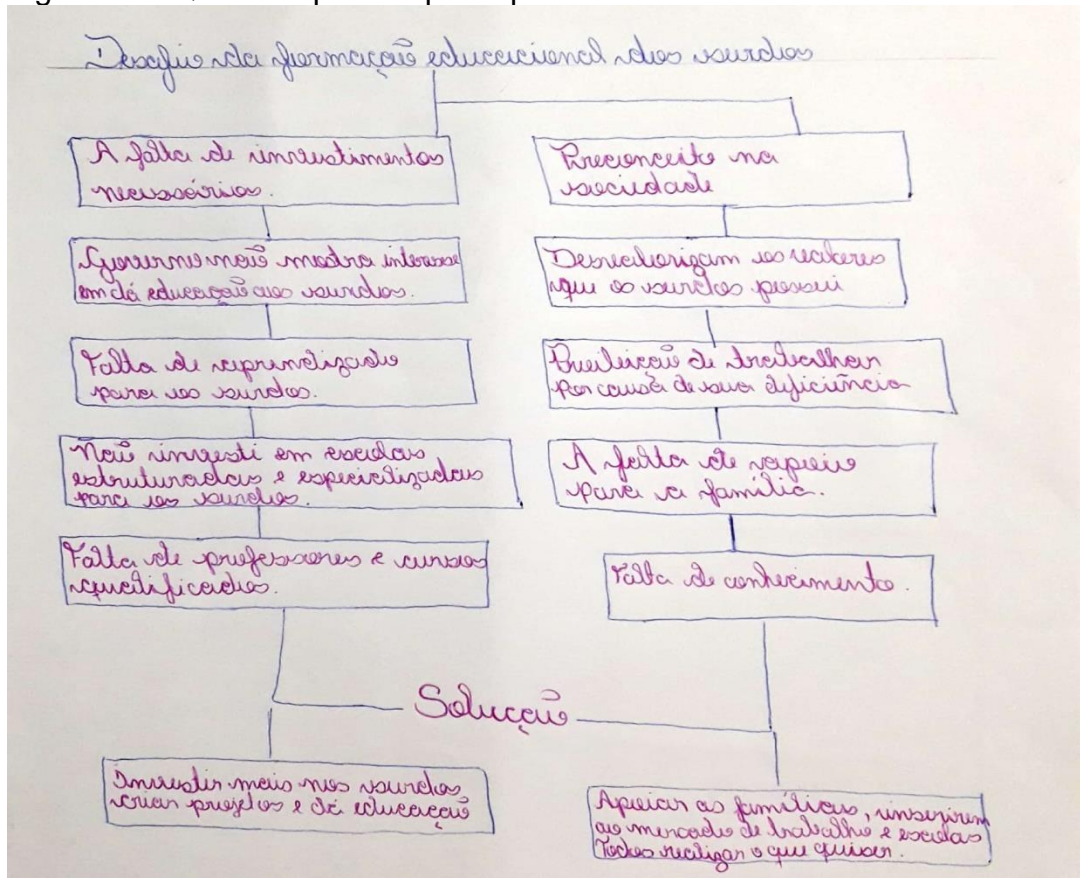 Desafio da formação educacional dos surdos
A falta de investimentos
necessários.
Governo não mostra interesse
em dá educação aos surdos.
Falta de aprendizado
para os surdos.
Não investi em escolas
estruturadas e especializadas
para os surdos.
Falta de professores e cursos
qualificados.
Preconceito na
sociedade
Desvalorizam os valores
que os surdos possui
de trabalhar
por causa de sua deficiência
A falta de apoio
para a família.
Falta de conhecimento.
Solução
Investir mais nos surdos
criar projetos e dá educação
Apoiar as famílias, inserirem
ao mercado de trabalho e escolas
Todos realizar o que quiser.